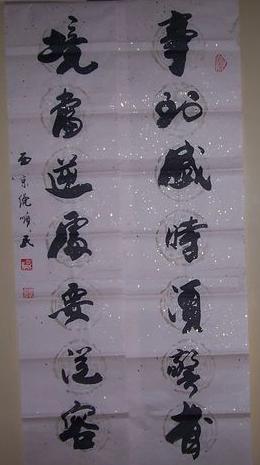 事到盛時須警省
境當逆處要從容
西京順民